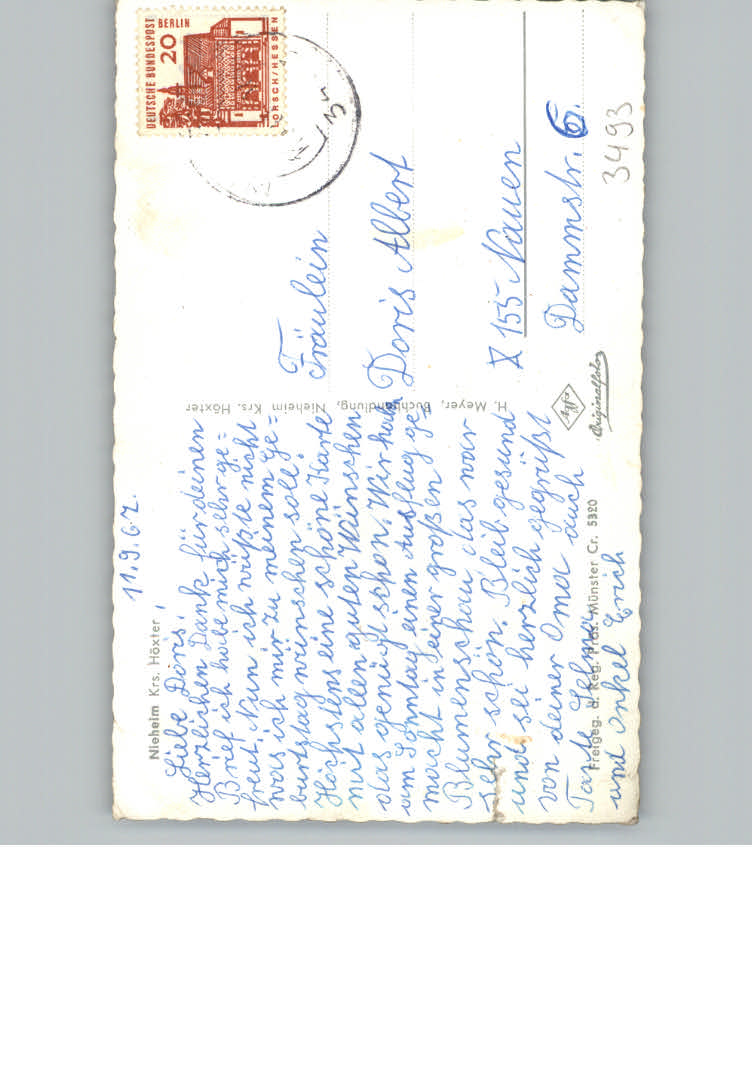 Nieheim Krs. Höxter,
11.9.67.
Liebe Doris,
Herzlichen Dank für deinen
Brief ich habe mich sehr ge=
freut, nun ich wüßte nicht
was ich mir zu meinem Ge=
burtstag wünschen soll.
Höchstens eine schöne Karte
mit allen guten Wünschen
das genügt schon. Wir haben
am Sonntag einen Ausflug ge=
macht in seiner großen
Blumenschau das war
sehr schön. Bleib gesund
und sei herzlich gegrüßt
von deiner Oma auch
Tante
und Onkel Erich
Freigeg. d. Reg. Präs. Münster Cr. 5320
H. Meyer, Buchhandlung, Nieheim Krs. Höxter
Agfa
Originalfoto
DEUTSCHE BUNDESPOST
BERLIN
20
LORSCH/HESSEN
Fräulein
Doris Albert
X 155 Nauen
Dammstr. 6.
3493